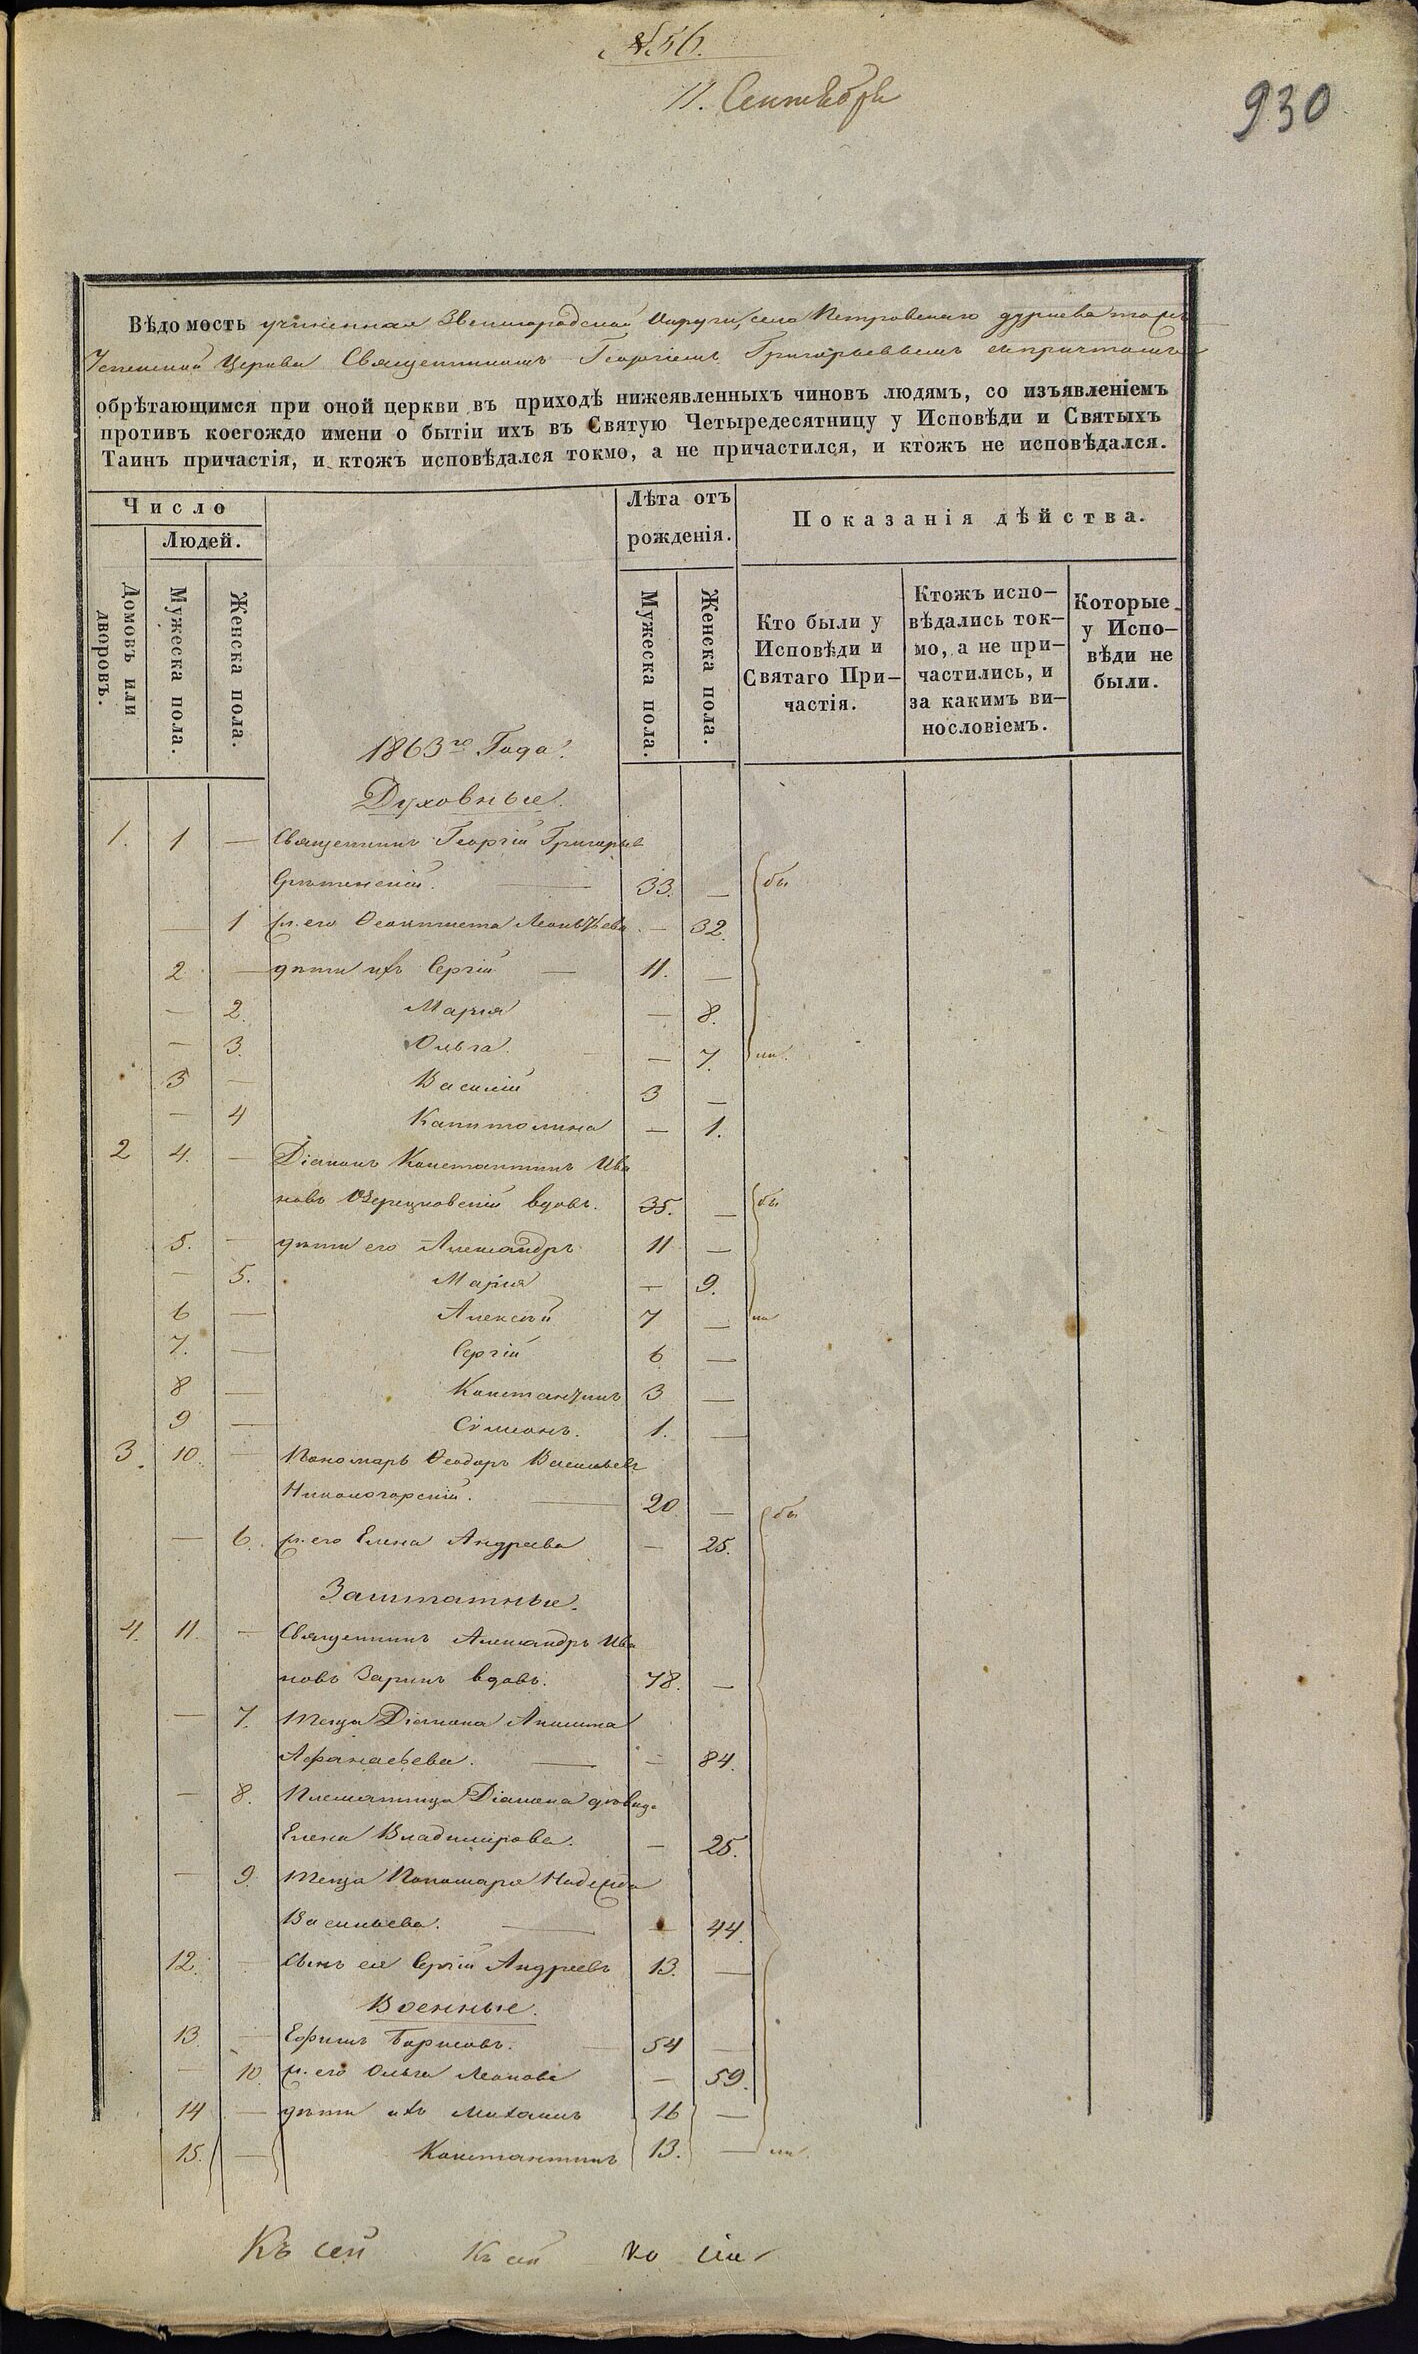 № 56.
11. Сентября
930
Вѣдомость учиненная Звенигородской Округи, села Петровскаго дурнева тожъ
Успенской Церкви Священникомъ Георгіемъ Григорьевымъ съ причтомъ
обрѣтающимся при оной церкви въ приходѣ нижеявленныхъ чиновъ людямъ, со изъявленіемъ
противъ коегождо имени о бытіи ихъ въ Святую Четыредесятницу у Исповѣди и Святыхъ
Таинъ причастія, и ктожъ исповѣдался токмо, а не причастился, и ктожъ не исповѣдался.
Число
Людей.
Домовъ или
дворовъ.
Мужеска пола.
Женска пола.
Лѣта отъ
рожденія.
Мужеска пола.
Женска пола.
Показанія дѣйства.
Кто были у
Исповѣди и
Святаго При–
частія.
Ктожъ испо–
вѣдались ток–
мо, а не при–
частились, и
за какимъ ви–
нословіемъ.
Которые
у Испо–
вѣди не
были.
1863го Года.
Духовные.
1. 1 — Священникъ Георгій Григорьев
Срѣтенскій. — 33. — бы
— 1 ж. его Феоктиста Леонтьева — 32.
2 — дѣти ихъ Сергій — 11. —
— 2. Марія — 8.
— 3. Ольга — 7. ли.
3 — Василій 3 —
— 4 Капитолина — 1.
2 4. — Діаконъ Константинъ Ива
новъ Озерецковскій вдовъ. 35. — бы
5. — дѣти его Александръ 11 —
— 5. Марія — 9.
6 — Алексѣй 7 — ли
7. — Сергій 6 —
8 — Константинъ 3 —
9 — Сѵмеонъ. 1. —
3. 10. — Пономарь Феодоръ Васильевъ
Никологорскій. — 20 — бы
— 6. ж. его Елена Андреева — 25.
Заштатные.
4. 11. — Священникъ Александръ Ива
новъ Заринъ вдовъ. 78. —
— 7. теща Діакона Акилина
Афанасьева. — — 84.
— 8. Племянница Діакона дѣвица
Елена Владимірова. — 25.
— 9. теща Пономаря Надежда
Васильева. — — 44.
12. — сынъ ея Сергій Андреевъ 13. —
Военные.
13. — Ефимъ Борисовъ. 54 —
— 10. ж. его Ольга Леонова — 59.
14 — дѣти ихъ Михаилъ 16 —
15. — Константинъ 13. — ли.
Къ сей Къ сей